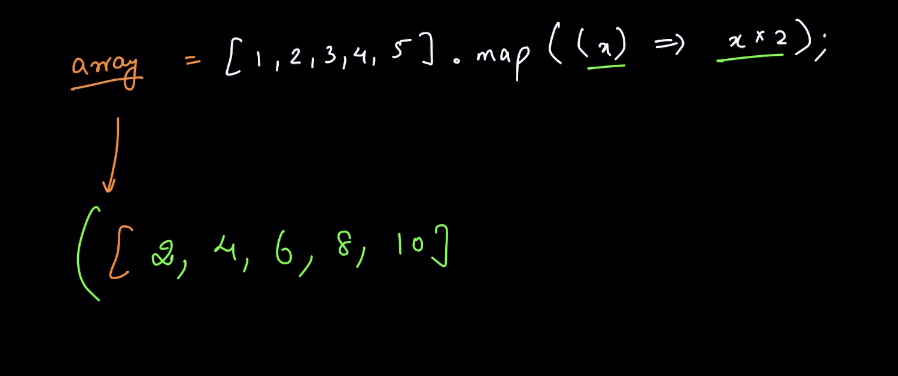 array = [1,2,3,4,5].map((x) => x*2);
([2, 4, 6, 8, 10]